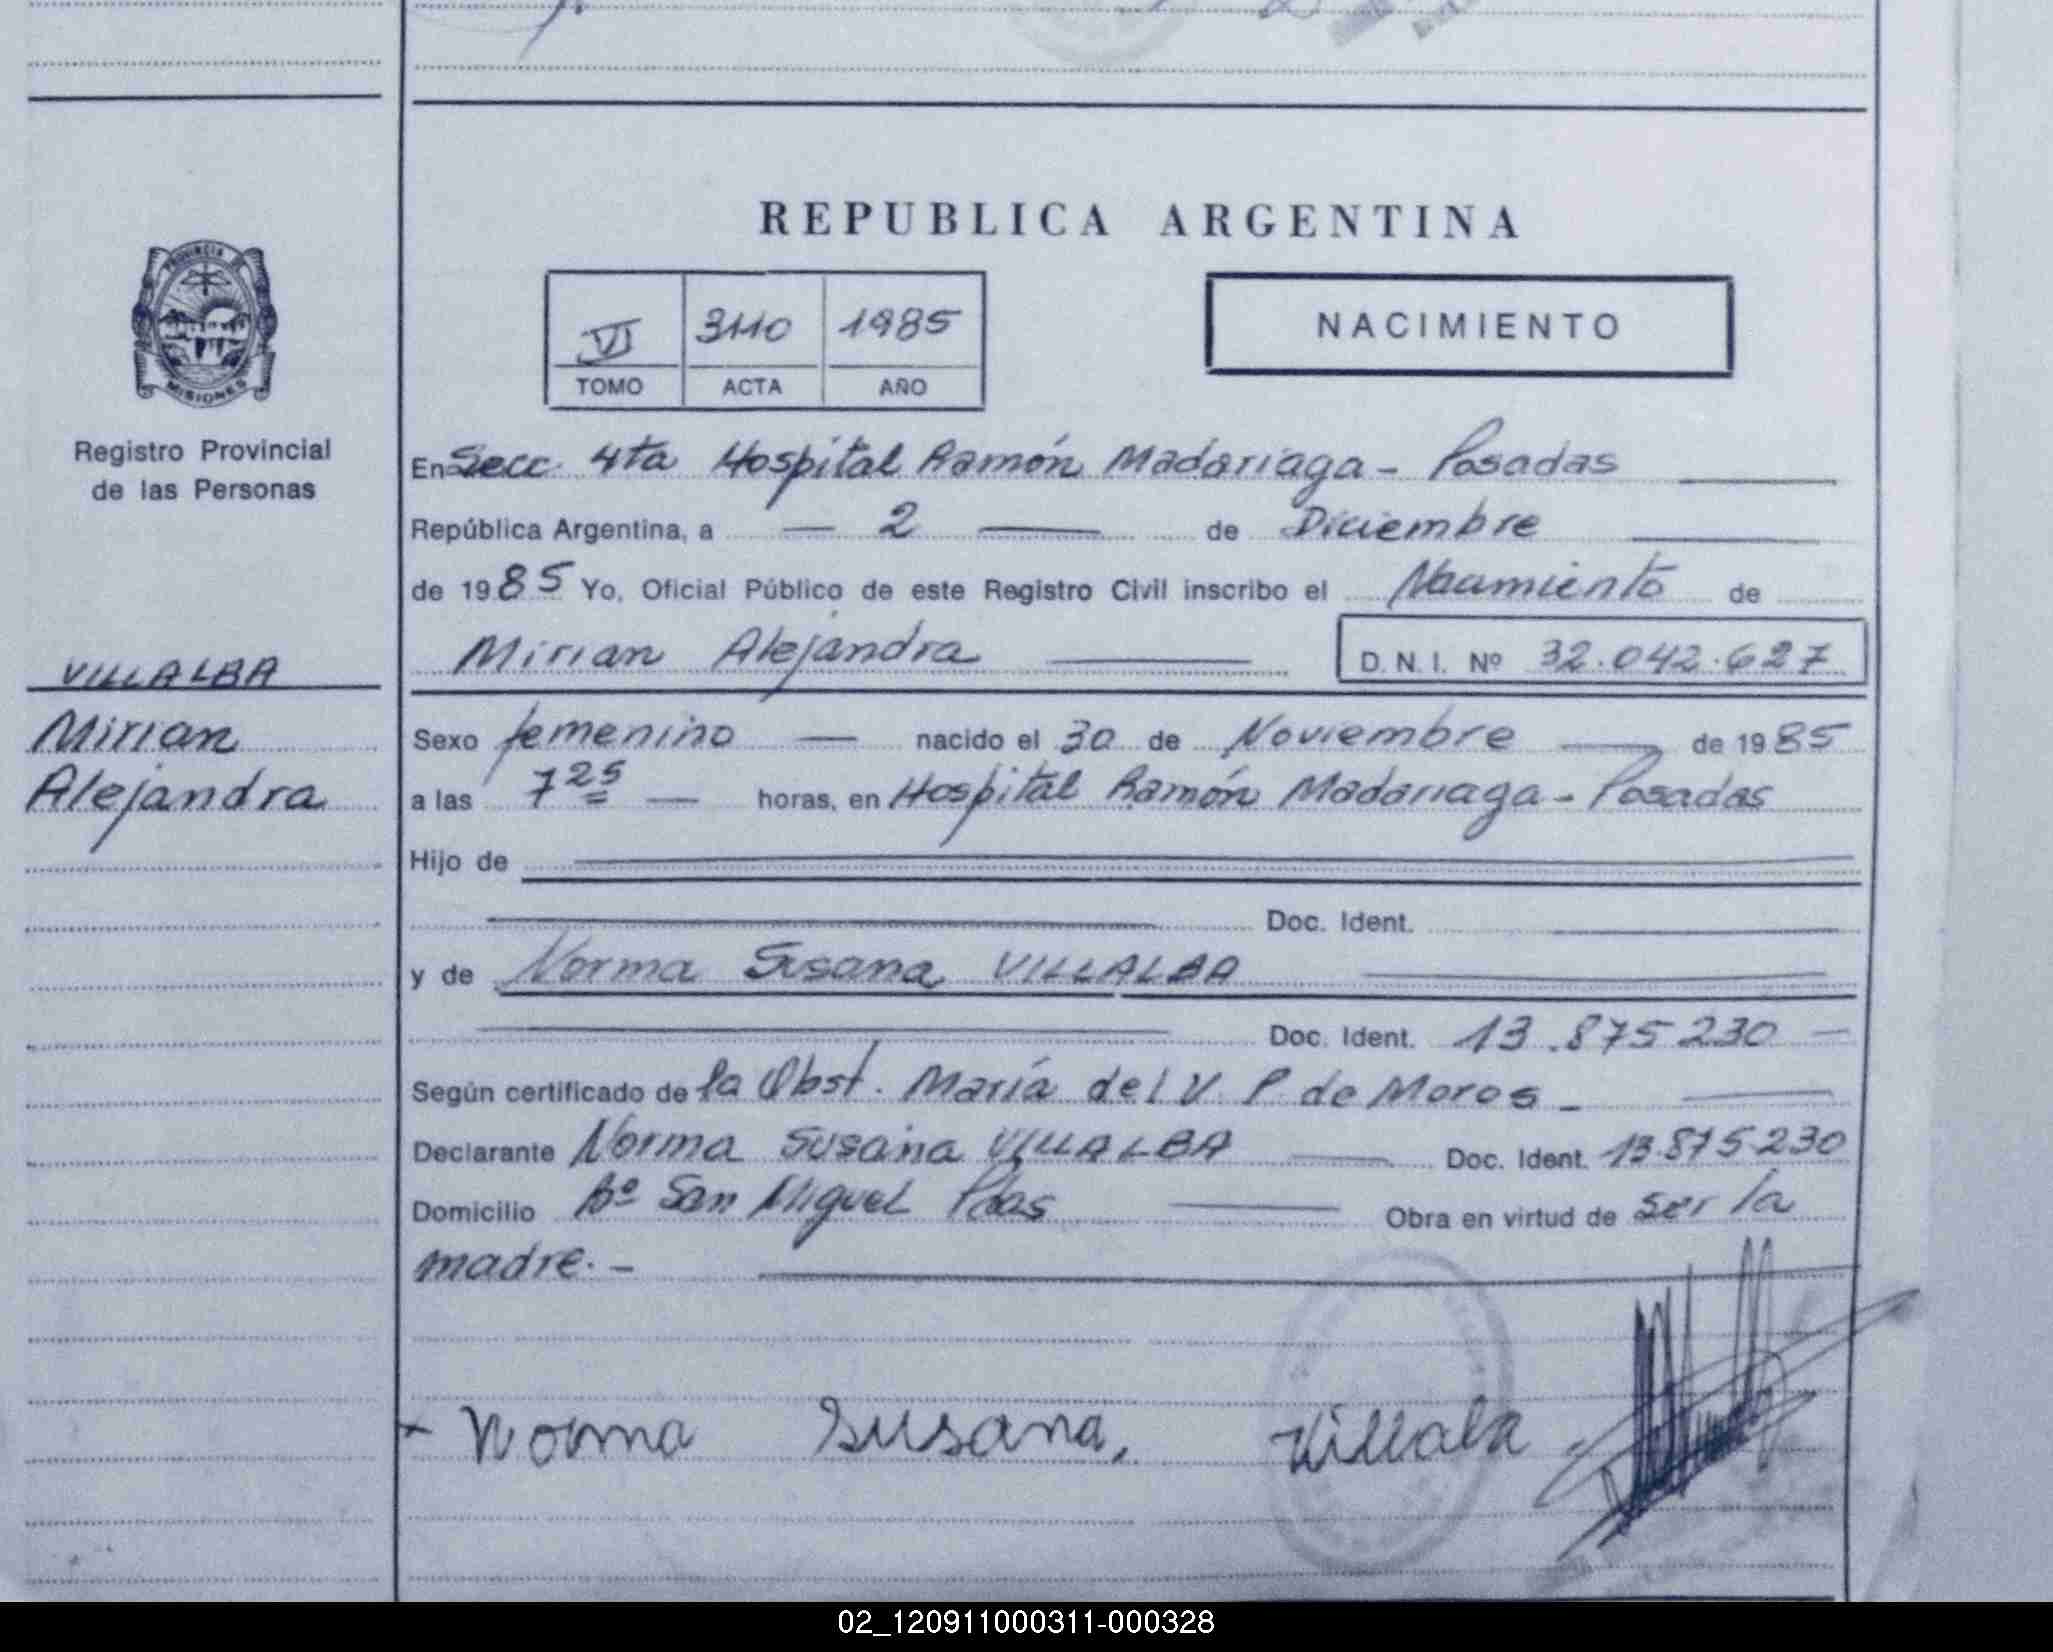 REPUBLICA ARGENTINA
PROVINCIA DE
MISIONES
Registro Provincial
de las Personas
VI 3110 1985
TOMO ACTA AÑO
NACIMIENTO
En Secc. 4ta Hospital Ramón Madariaga - Posadas
República Argentina, a — 2 — de Diciembre
de 1985 Yo, Oficial Público de este Registro Civil inscribo el Nacimiento de
Mirian Alejandra — D. N. I. Nº 32.042.627
VILLALBA
Mirian
Alejandra
Sexo femenino — nacido el 30 de Noviembre — de 1985
a las 7 25 — horas, en Hospital Ramón Madariaga - Posadas
Hijo de
Doc. Ident.
y de Norma Susana VILLALBA
Doc. Ident. 13.875230 —
Según certificado de la Obst. María del V. P. de Moros -
Declarante Norma Susana VILLALBA — Doc. Ident. 13.875.230
Domicilio Bº San Miguel Pdas — Obra en virtud de ser la
madre. -
Norma Susana, Villala
02_120911000311-000328